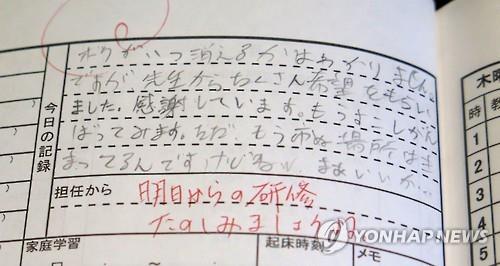 今日の記録
ボクがいつ消えるかはわかりません。
ですが、先生からたくさん希望をもらい
ました。感謝しています。もうすこしがん
ばってみます。ただ、もう市ぬ場所はき
まってるんですけどねw。まあいいか…
担任から
明日からの研修
たのしみましょうね。
家庭学習
起床時刻
メモ
木曜
時
1
2
3
4
5
YONHAPNEWS